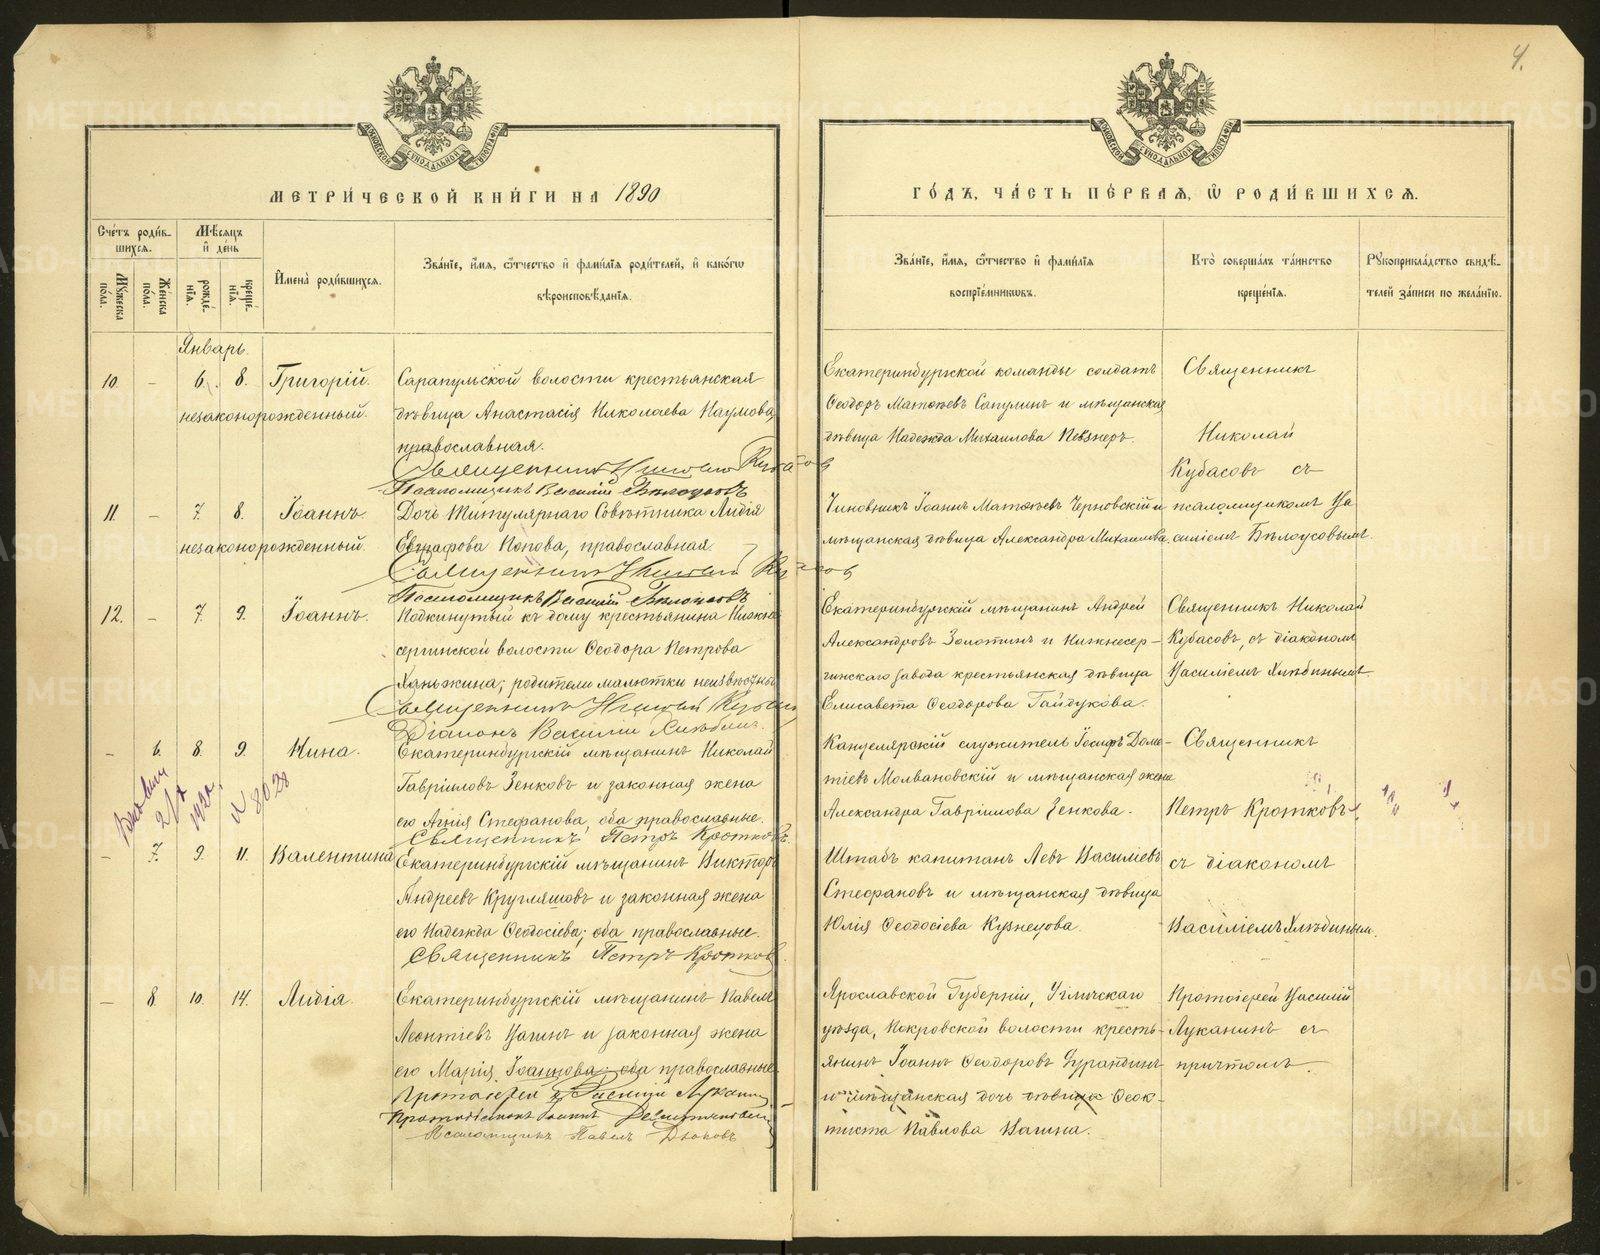 4.
МЕТРИ́ЧЕСКОЙ КНИ́ГИ НА 1890
ГО́ДЪ, ЧА́СТЬ ПЕ́РВАѦ, Ѡ РОДИ́ВШИХСѦ.
Счéтъ роди́вшихсѧ.
Мꙋ́жеска по́ла.
Же́нска по́ла.
Мѣ́сѧцъ и҆ де́нь
рожде́нїѧ.
креще́нїѧ.
И҆мена̀ роди́вшихсѧ.
Зва́нїе, и҆́мѧ, ѻ҆́тчество и҆ фами́лїѧ роди́телей, и҆ како́гѡ
вѣроисповѣ́данїѧ.
Зва́нїе, и҆́мѧ, ѻ҆́тчество и҆ фами́лїѧ
воспрїе́мникѡвъ.
Кто̀ соверша́лъ та́инство
креще́нїѧ.
Рꙋкоприкла́дство свидѣ́телей за́писи по жела́нїю.
Январь.
10. – 6. 8. Григорій.
незаконорожденный.
Сарапульской волости крестьянская
дѣвица Анастасія Николаева Наумова,
православная.
Священникъ Николай Кубасовъ
Псаломщикъ Василій Бѣлоусовъ
Екатеринбургской команды солдатъ
Ѳеодоръ Матѳеевъ Сапулинъ и мѣщанская
дѣвица Надежда Михаилова Певзнеръ.
Священникъ
Николай
Кубасовъ съ
11. – 7. 8. Іоаннъ.
незаконорожденный.
Дочь Титулярнаго Совѣтника Лидія
Евграфова Попова, православная.
Священникъ Николай Кубасовъ
Псаломщикъ Василій Бѣлоусовъ
Чиновникъ Іоаннъ Матѳеевъ Черновскій и
мѣщанская дѣвица Александра Михаилова.
псаломщикомъ Ва
силіемъ Бѣлоусовымъ.
12. – 7. 9. Іоаннъ.
Подкинутый къ дому крестьянина Нижне
сергинской волости Ѳеодора Петрова
Ханьжина; родители малютки неизвѣстны
Священникъ Николай Кубасовъ
Діаконъ Василій Хлѣбинъ.
Екатеринбургскій мѣщанинъ Андрей
Александровъ Золотинъ и Нижнесер–
гинскаго завода крестьянская дѣвица
Елисавета Ѳеодорова Гайдукова.
Священникъ Николай
Кубасовъ, съ діакономъ
Василіемъ Хлѣбинымъ
– 6. 8. 9. Нина.
Екатеринбургскій мѣщанинъ Николай
Гавріиловъ Зенковъ и законная жена
его Агнія Стефанова, оба православные.
Священникъ Петръ Кротковъ.
Канцелярскій служитель Іосифъ Доме–
тіевъ Молвановскій и мѣщанская жена
Александра Гавріилова Зенкова.
Священникъ
Петръ Кротковъ
№ 8028
– 7. 9. 11. Валентина
Екатеринбургскій мѣщанинъ Викторъ
Андреевъ Кругляшовъ и законная жена
его Надежда Ѳеодосіева; оба православные.
Священникъ Петръ Кротковъ.
Штабъ капитанъ Левъ Василіевъ
Стефановъ и мѣщанская дѣвица
Юлія Ѳеодосіева Кузнецова.
съ діакономъ
Василіемъ Хлѣбинымъ.
– 8. 10. 14. Лидія.
Екатеринбургскій мѣщанинъ Павелъ
Леонтіевъ Вагинъ и законная жена
его Марія Іоаннова, оба православные.
Протоіерей Василій Луканинъ
Протодіаконъ Іоаннъ
Псаломщикъ Павелъ
Ярославской Губерніи, Угличскаго
уѣзда, Покровской волости кресть–
янинъ Іоаннъ Ѳеодоровъ Бурандинъ
и мѣщанская дочь дѣвица Ѳеок–
тиста Павлова Вагина.
Протоіерей Василій
Луканинъ съ
причтомъ.